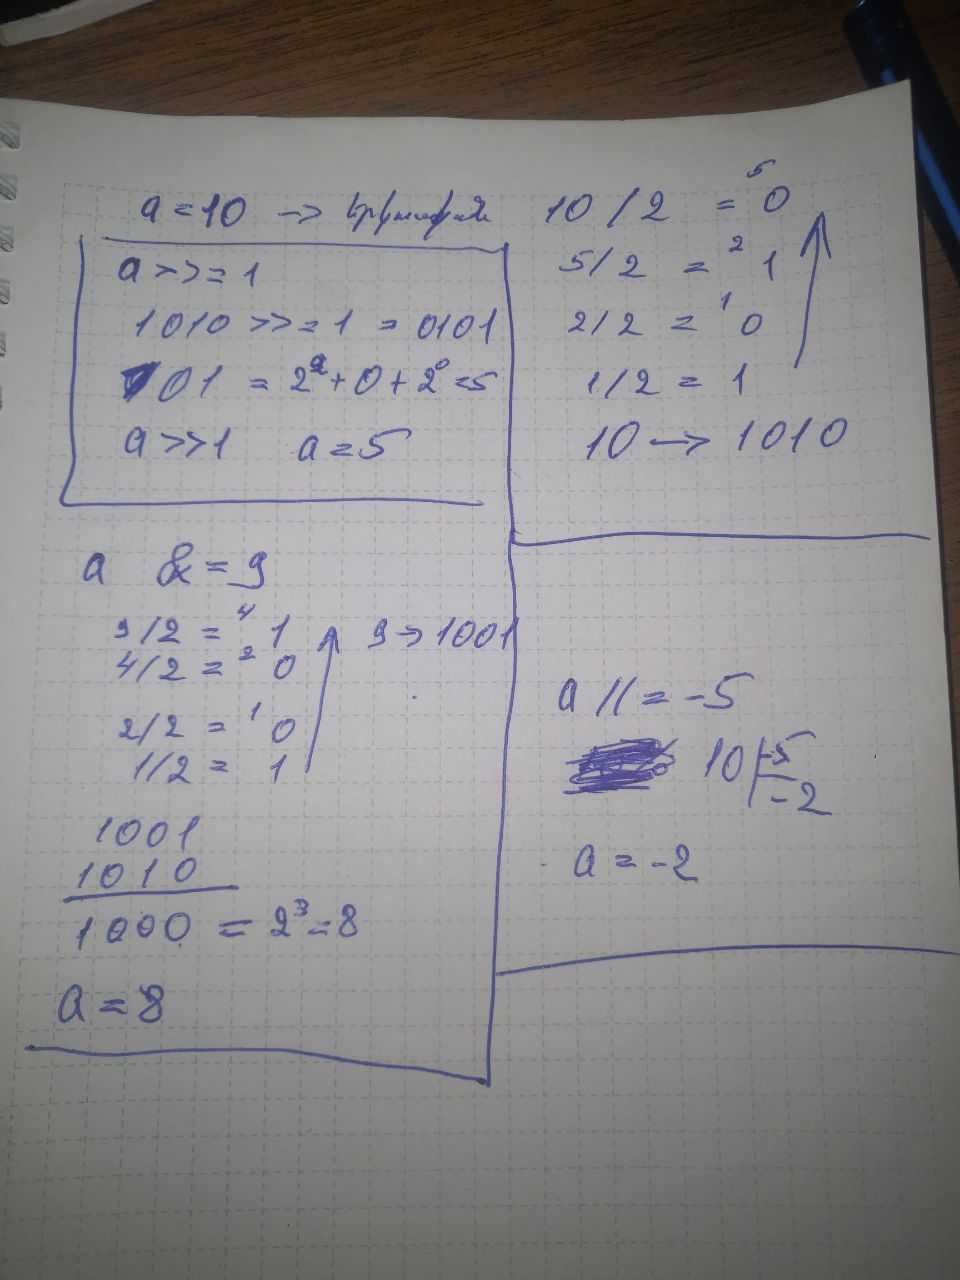 a = 10 ->
a >> = 1
1010 >> = 1 = 0101
01 = 2² + 0 + 2⁰ = 5
a >> 1 a = 5
10 / 2 = ⁵ 0
5 / 2 = ² 1
2 / 2 = ¹ 0
1 / 2 = 1
10 -> 1010
a & = 9
9 / 2 = ⁴ 1 9 -> 1001
4 / 2 = ² 0
2 / 2 = ¹ 0
1 / 2 = 1
1001
1010
1000 = 2³ = 8
a = 8
a // = -5
10 | -5
-2
a = -2